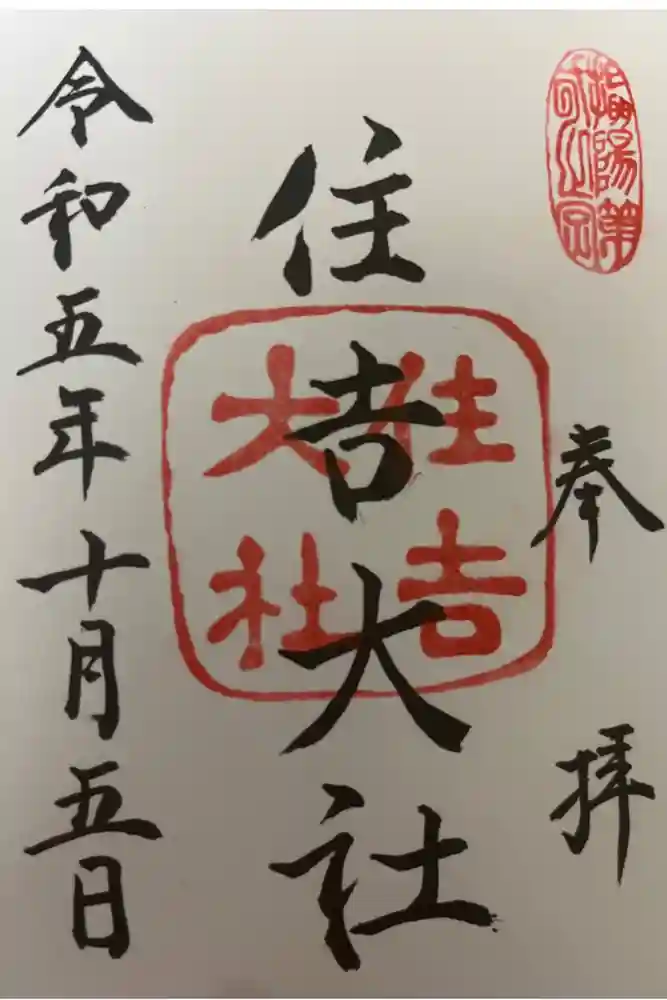 陽第
之宮
奉拝
住吉大社
住吉
大社
令和五年十月五日